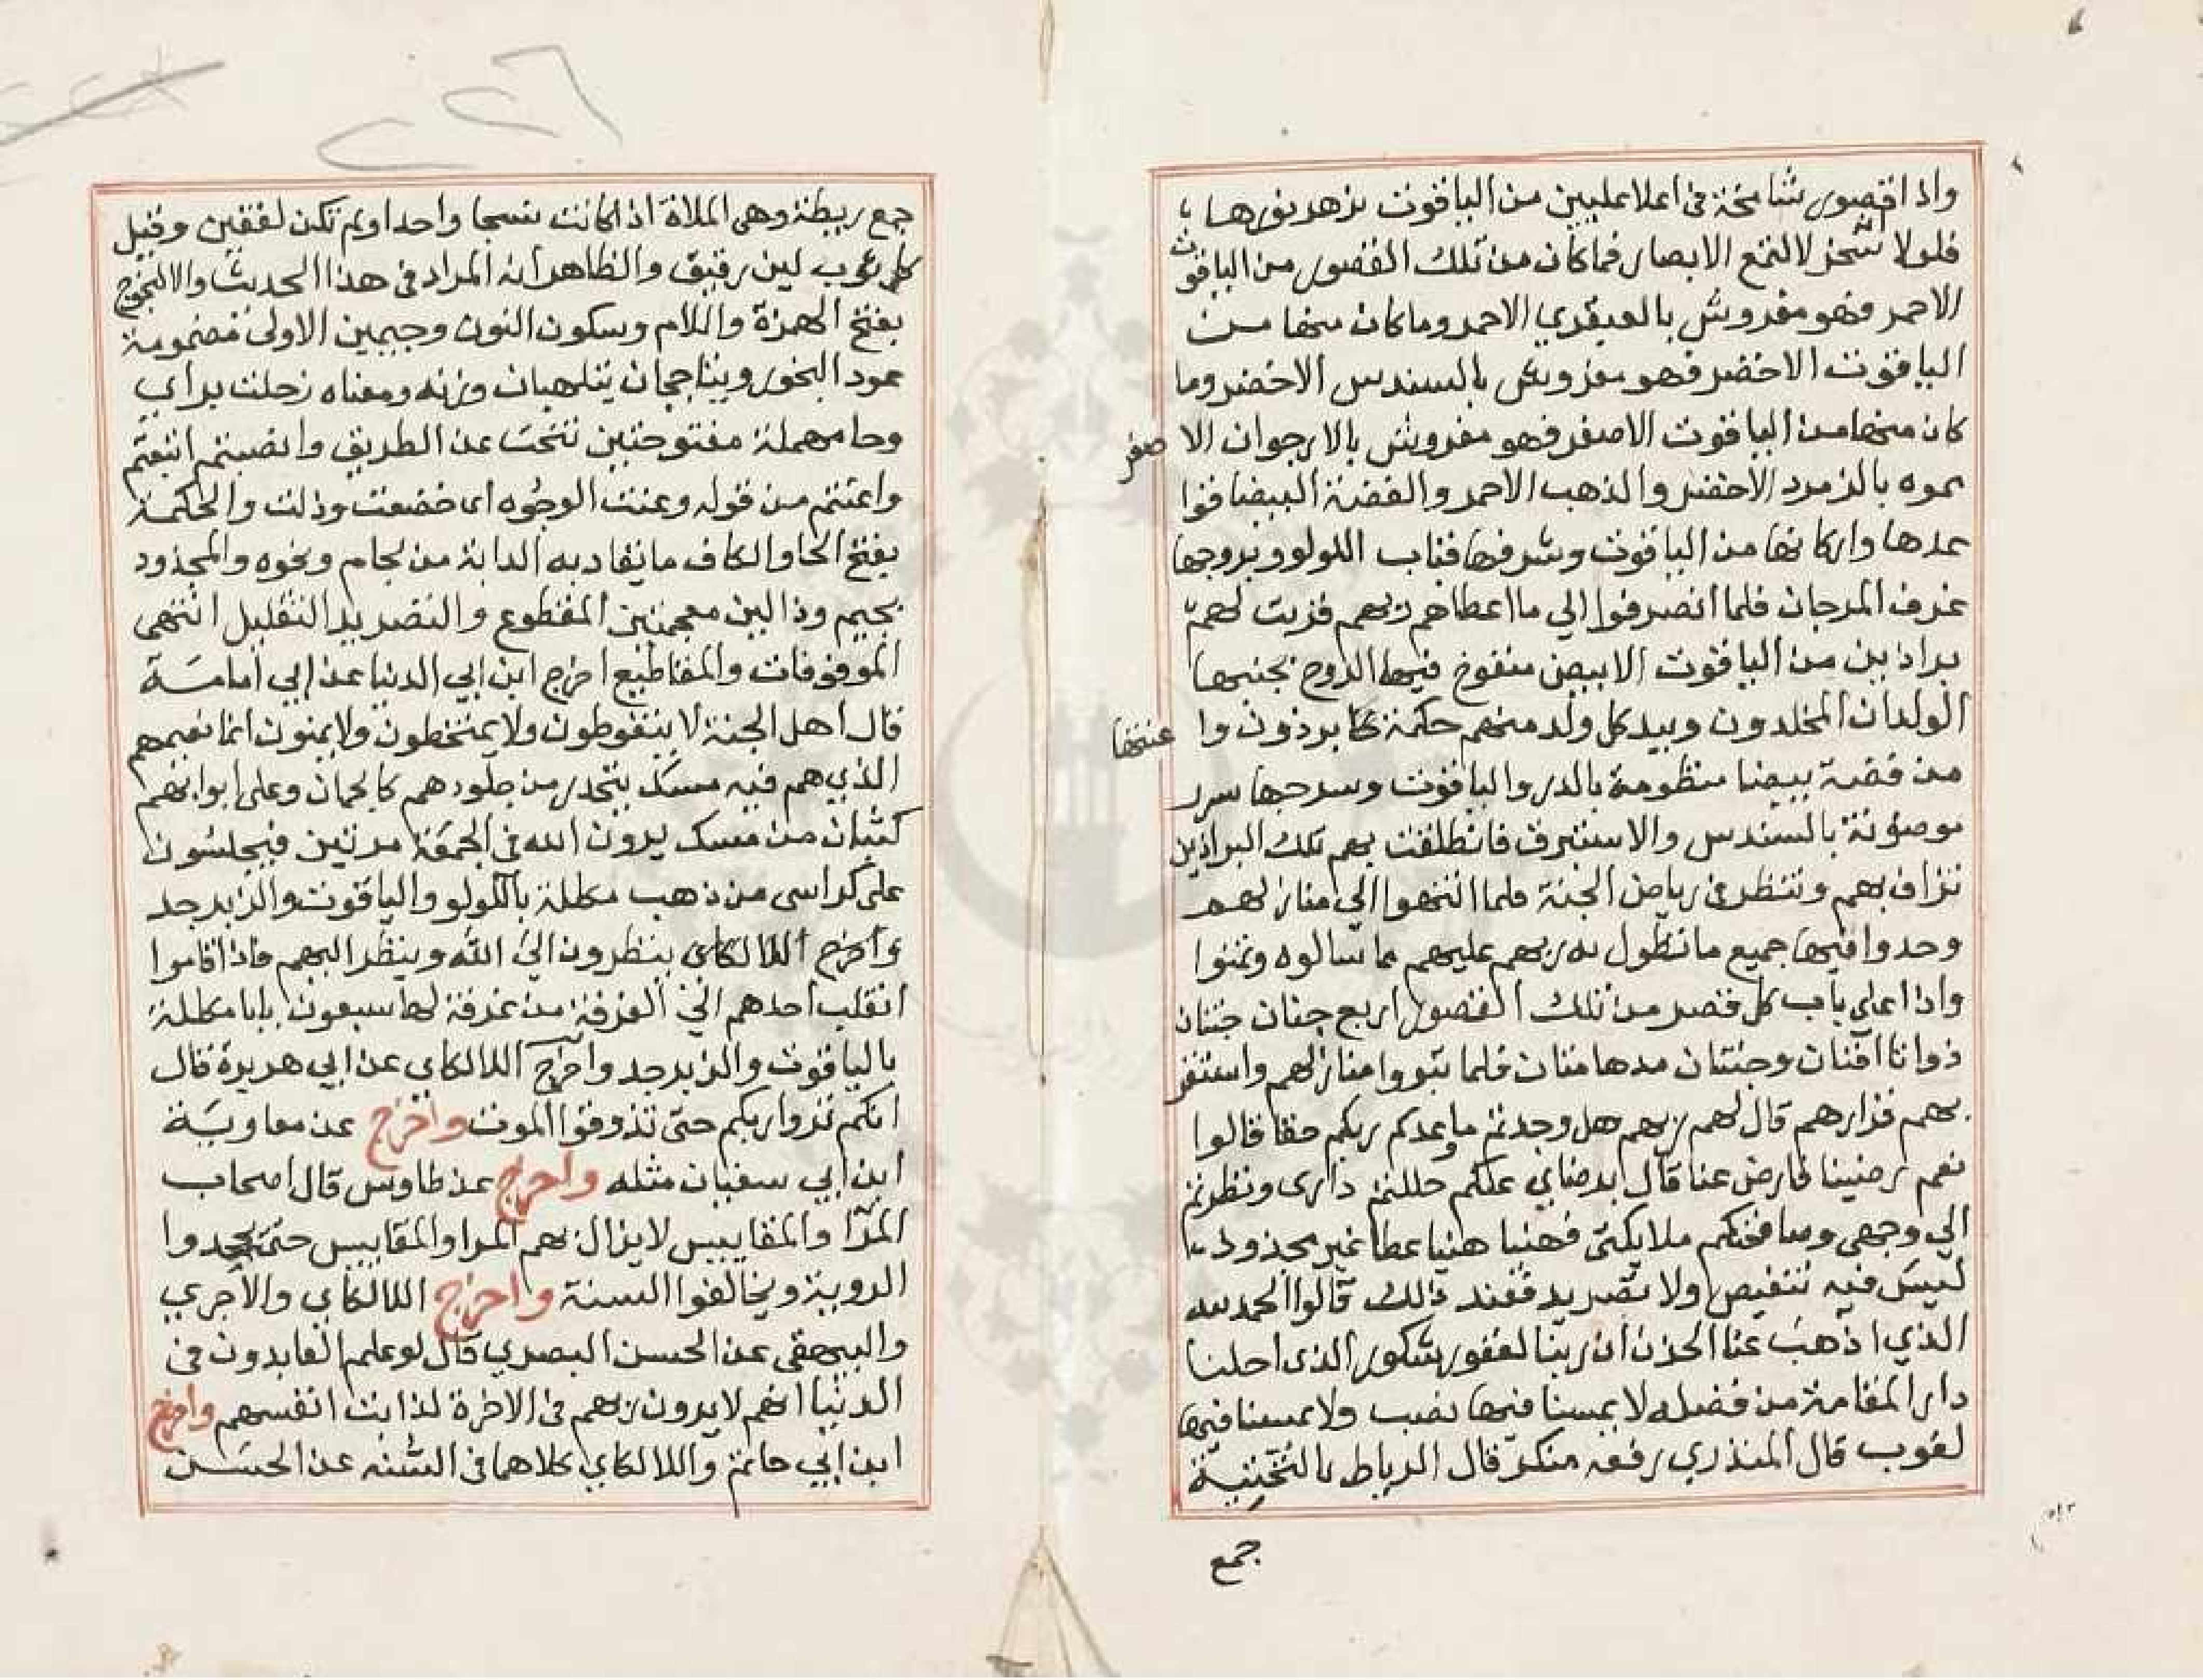 واذا قصور شامخة في اعلا عليين من الياقوت يزهر نورها
فلولا انه سخر لالتمع الابصار فما كان من تلك القصور من الياقوت
الاحمر فهو مفروش بالعبقري الاحمر وما كان منها من
الياقوت الاخضر فهو مفروش بالسندس الاخضر وما
كان منها من الياقوت الاصفر فهو مفروش بالارجوان الاصفر
مموه بالزمرد الاخضر والذهب الاحمر والفضة البيضا قوا
عدها واركانها من الياقوت وشرفها قباب اللولو وبروجها
غرف المرجان فلما انصرفوا الي ما اعطاهم ربهم قربت لهم
براذين من الياقوت الابيض منفوخ فيها الروح بجنبها
الولدان المخلدون وبيد كل ولد منهم حكمة برذون واعنتها
من فضة بيضا منظومة بالدر والياقوت وسرجها سرر
موضونة بالسندس والاستبرق فانطلقت بهم تلك البراذين
تزاف بهم وتنظر في رياض الجنة فلما انتهوا الي منازلهم
وجدوا فيها جميع ما تطول به ربهم عليهم مما سالوه وتمنوا
واذا علي باب كل قصر من تلك القصور اربع جنان جنتان
ذواتا افنان وجنتان مدهامتان فلما تبووا منازلهم واستقر
بهم قرارهم قال لهم ربهم هل وجدتم ما وعدكم ربكم حقا قالوا
نعم رضينا فارض عنا قال برضاي عنكم حللتم داري ونظرتم
الي وجهي وصافحتكم ملايكتي فهنيا هنيا عطا غير مجذوذ
ليس فيه تنغيص ولا تصريد فعند ذلك قالوا الحمد لله
الذي اذهب عنا الحزن ان ربنا لغفور شكور الذي احلنا
دار المقامة من فضله لا يمسنا فيها نصب ولا يمسنا فيها
لغوب قال المنذري رفعه منكر قال الرياط بالتحتية
جمع
جمع ريطة وهي الملاة اذا كانت نسجا واحدا ولم تكن لفقين وقيل
كل ثوب لين رقيق والظاهر انه المراد في هذا الحديث والالنجوج
بفتح الهمزة واللام وسكون النون وجيمين الاولي مضمومة
عود البخور ويتاججان يتلهبان وزنه ومعناه زحلت براي
وحا مهملة مفتوحتين تنحت عن الطريق وانصبتم اتبعتم
واعنتم من قوله وعنت الوجوه اي خضعت وذلت والحكمة
بفتح الحا والكاف ما يقاد به الدابة من لجام ونحوه والمجذوذ
بجيم وذالين معجمتين المقطوع والتصريد التقليل انتهي
الموقوفات والمقاطيع اخرج ابن ابي الدنيا عن ابي امامة
قال اهل الجنة لا يتغوطون ولا يمتخطون ولا يمنون انما نعيمهم
الذي هم فيه مسك يتحدر من جلودهم كالجمان وعلي ابوابهم
كثبان من مسك يزورون الله في الجمعة مرتين فيجلسون
علي كراسي من ذهب مكللة باللولو والياقوت والزبرجد
واخرج اللالكاي ينظرون الي الله وينظر اليهم فاذا قاموا
انقلب احدهم الي الغرفة من غرفة لها سبعون بابا مكللة
بالياقوت والزبرجد واخرج اللالكاي عن ابي هريرة قال
انكم لن تروا ربكم حتي تذوقوا الموت واخرج عن معاوية
ابن ابي سفيان مثله واخرج عن طاوس قال اصحاب
المرا والمقاييس لا يزال بهم المرا والمقاييس حتي يجحدوا
الروية ويخالفوا السنة واخرج اللالكاي والاجري
والبيهقي عن الحسن البصري قال لو علم العابدون في
الدنيا انهم لا يرون ربهم في الاخرة لذابت انفسهم واخرج
ابن ابي حاتم واللالكاي كلاهما في السنه عن الحسن